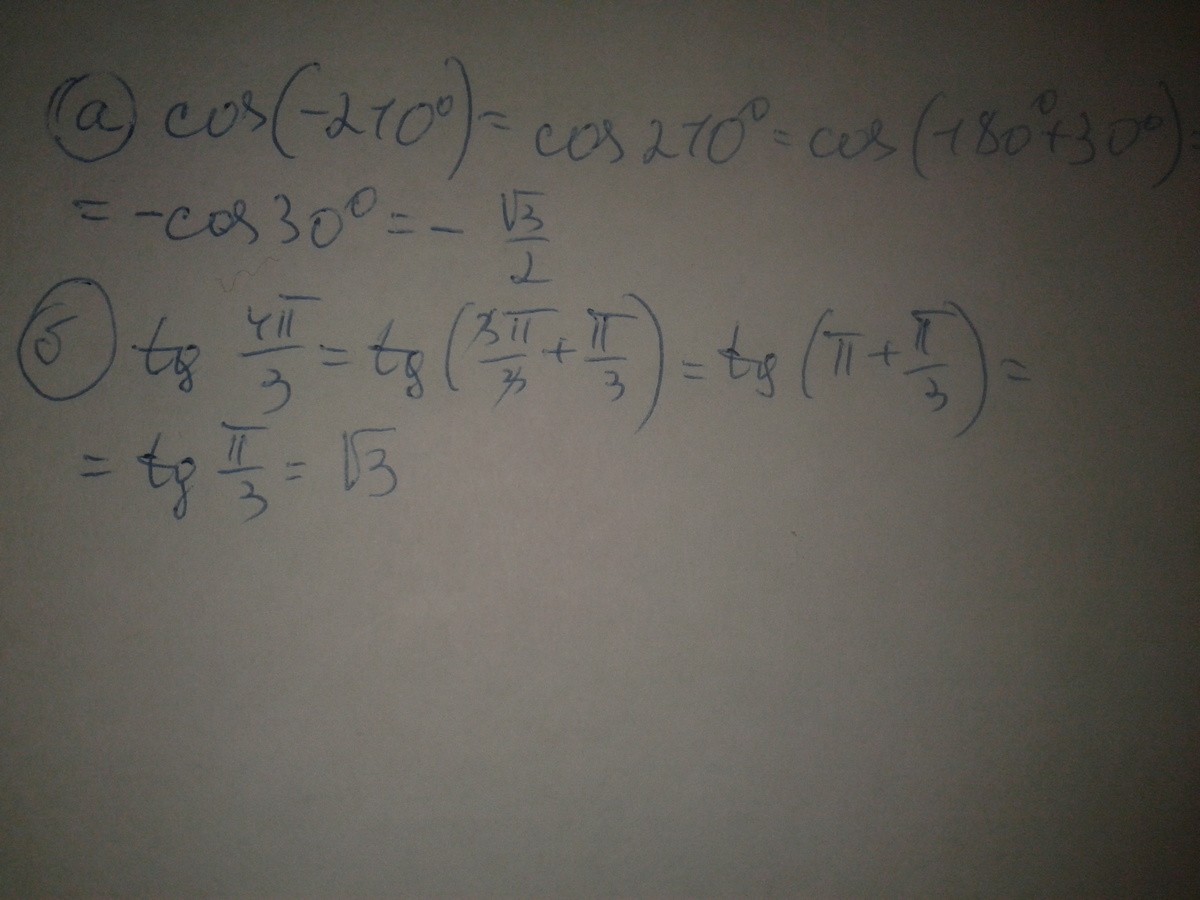 а) cos(-210°) = cos 210° = cos(180° + 30°) =
= -cos 30° = - √3/2
б) tg 4π/3 = tg (3π/3 + π/3) = tg (π + π/3) =
= tg π/3 = √3